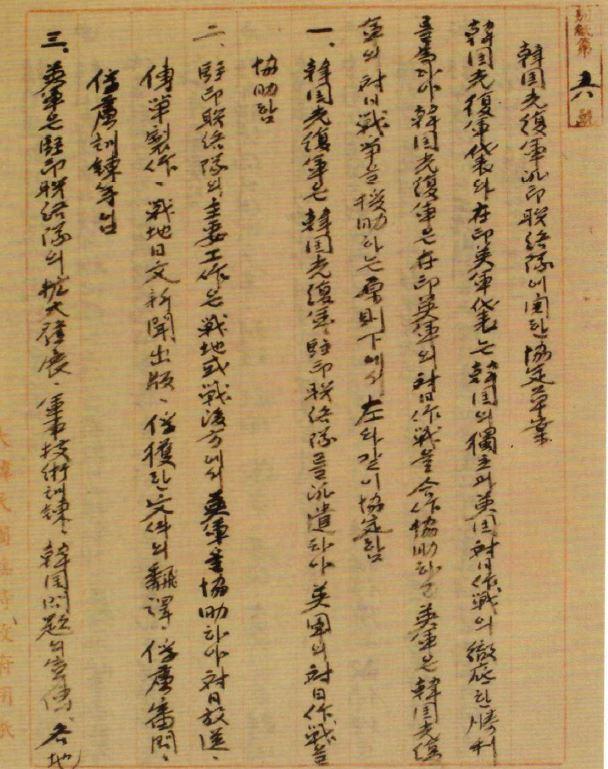 別紙第 六 號
韓国光復軍派印聯絡隊에 関한 協定草案
韓国光復軍代表와 在印英軍代表는 韓国의 獨立과 英国 対日作戦의 徹底한 勝利
를 爲하야 韓国光復軍은 在印英軍의 対日作戦을 合作協助하고 英軍은 韓国光復
軍의 対日戦爭을 援助하는 原則下에서 左와 갈이 協定함
一、韓国光復軍은 韓国光復軍駐印聯絡隊를 派遣하야 英軍의 対日作戦을
協助함
二、駐印聯絡隊의 主要工作은 戦地或戦後方에서 英軍을 協助하야 対日放送、
傳單製作、戦地日文新聞出版、俘獲한 文件의 翻譯、俘虜審問、
俘虜訓練等임
三、英軍은 駐印聯絡隊의 擴大發展、軍事技術訓練、韓国問題의 宣傳、各地
大韓民國臨時政府用紙